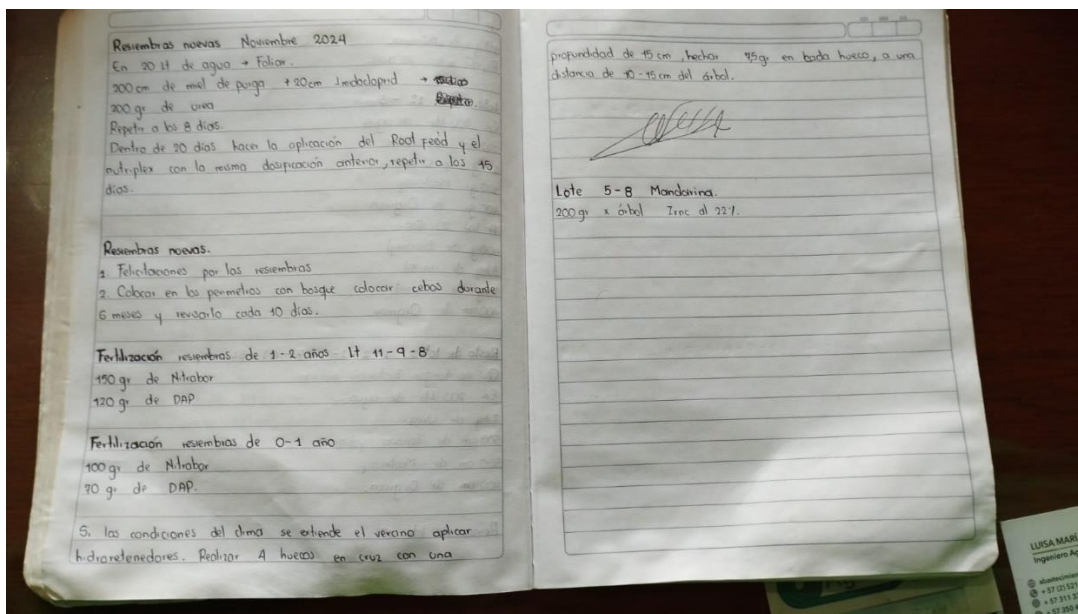 Resiembras nuevas Noviembre 2024
En 20 lt de agua → Foliar.
200 cm de miel de purga + 20cm Imidacloprid →
200 gr de urea
Repetir a los 8 días
Dentro de 20 días hacer la aplicación del Root feed y el
nutriplex con la misma dosificación anterior, repetir a los 15
días.
Resiembras nuevas.
1. Felicitaciones por las resiembras
2. Colocar en los perimetros con bosque colocar cebos durante
6 meses y revisarlo cada 10 días.
Fertilización resiembras de 1-2 años Lt 11-9-8
150 gr de Nitrabor
120 gr de DAP
Fertilización resiembras de 0-1 año
100 gr de Nitrabor
70 gr de DAP.
Si las condiciones del clima se extiende el verano aplicar
hidroretenedores. Realizar 4 huecos en cruz con una
profundidad de 15 cm, hechar 75gr en cada hueco, a una
distancia de 10-15 cm del árbol.
Lote 5-8 Mandarina.
200 gr x árbol Zinc al 22%.
LUISA MARÍ
Ingeniero Ag
abastecimien
+57 (2) 521
+57 311 3